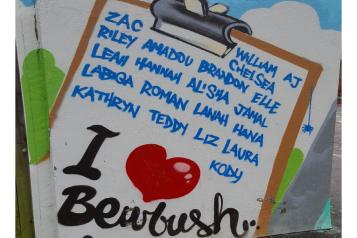 ZAC WILLIAM AJ
RILEY AMADOU BRANDON CHELSEA ELLE
LEAH HANNAH ALISHA JAMAL
LABIQA ROMAN LANAH HANA
KATHRYN TEDDY LIZ LAURA
KODY
I
Bewbush..